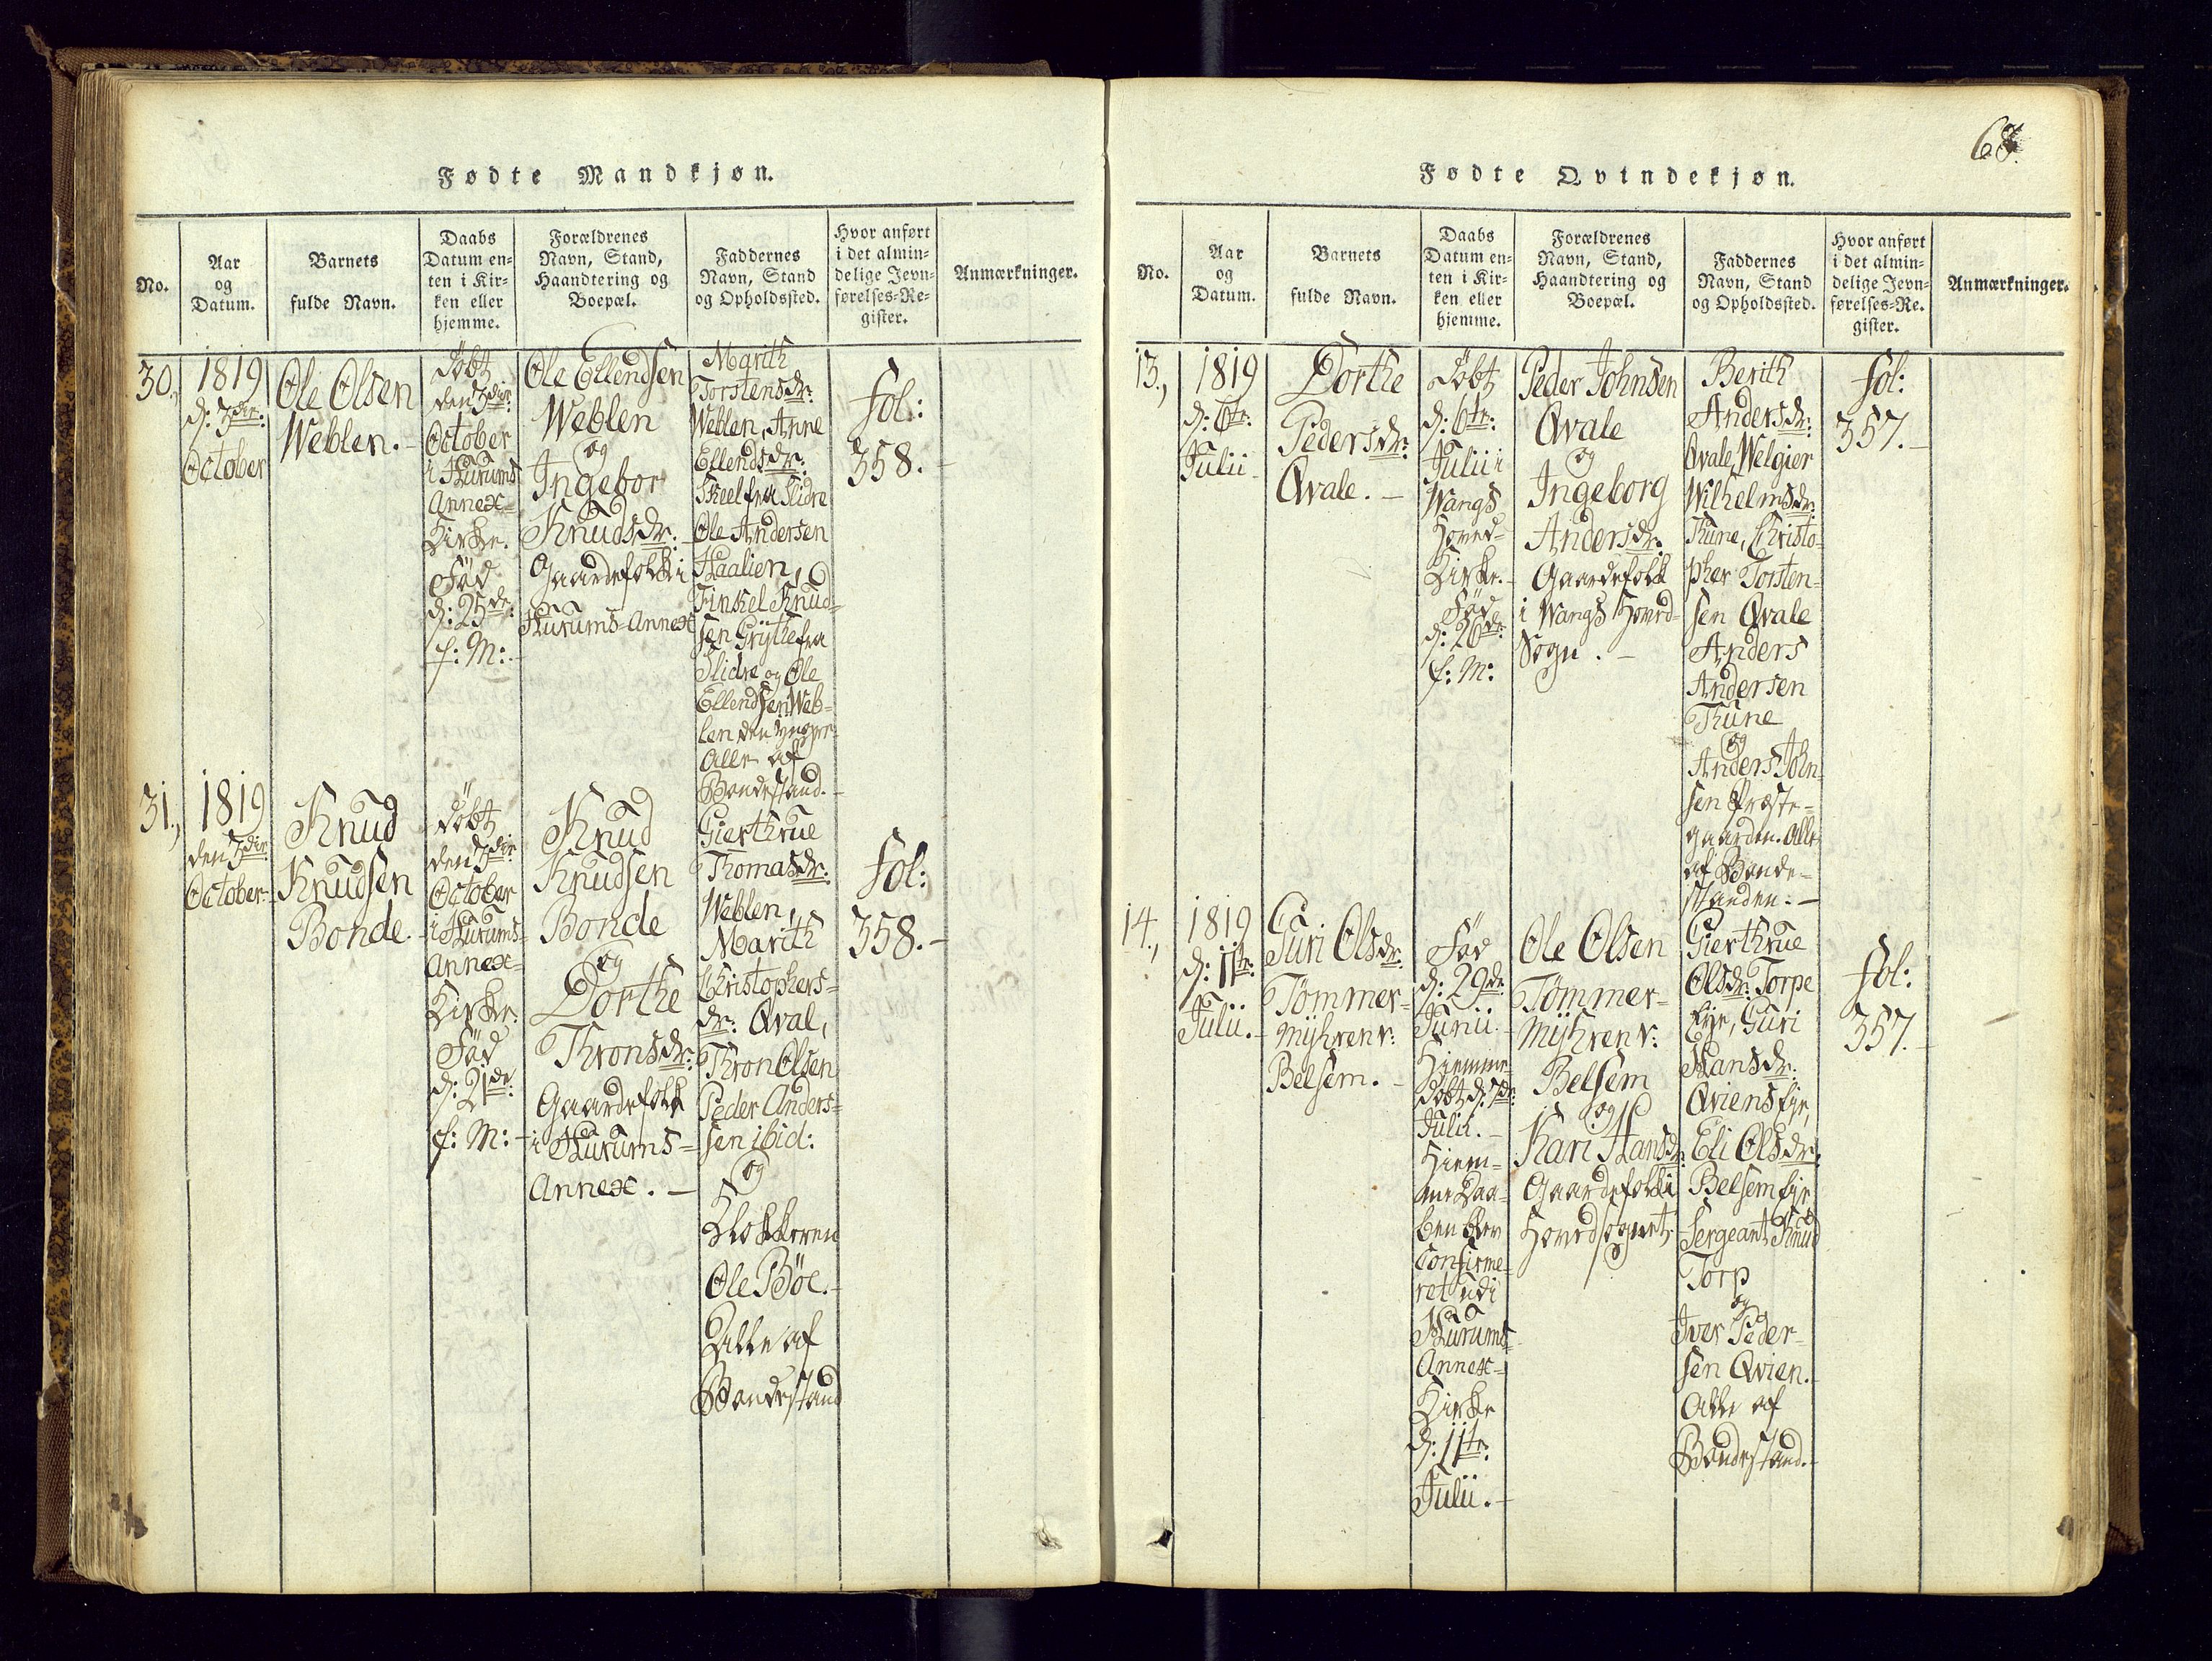 68.
Fødte Mandkjøn.
No.
Aar
og
Datum.
Barnets
fulde Navn.
Daabs
Datum en-
ten i Kir-
ken eller
hjemme.
Forældrenes
Navn, Stand,
Haandtering og
Boepæl.
Faddernes
Navn, Stand
og Opholdssted.
Hvor anført
i det almin-
delige Jevn-
førelses-Re-
gister.
Anmærkninger.
30.,
1819
d: 3die
October
Ole Olsen
Weblen.-
Døbt
den 3die
October
i Hurums
Annex-
Kirke.
Fød
d: 25de:
f: M:-
Ole Ellendsen
Weblen
og
Ingebor
Knudsdr:
Gaardefolk i
Hurums-Annex
Marith
Torstensdr:
Weblen, Anne
Ellendsdr:
Skeel fra Slidre
Ole Andersen
Haalien,
Finkel Knud-
sen Grythe fra
Slidre og Ole
Ellendsen Web-
len den yngre-
Alle af
Bondestand.-
fol:
358.-
31.,
1819
den 3die
October-
Knud
Knudsen
Bonde.-
døbt
den 3die
October
i Hurums-
Annex-
Kirke.
Fød
d: 21de:
f: M:-
Knud
Knudsen
Bonde
og
Dorthe
Thronsdr:
Gaardefolk
i Hurums-
Annex.-
Gierthrue
Thomasdr:
Weblen,
Marith
Christophers-
dr: Qval,
Thron Olsen
Peder Anders-
sen ibid:
og
Klokkeren
Ole Böe.-
Alle af
Bondestand
fol:
358.-
Fødte Qvindekjøn.
No.
Aar
og
Datum.
Barnets
fulde Navn.
Daabs
Datum en-
ten i Kir-
ken eller
hjemme.
Forældrenes
Navn, Stand,
Haandtering og
Boepæl.
Faddernes
Navn, Stand
og Opholdssted.
Hvor anført
i det almin-
delige Jevn-
førelses-Re-
gister.
Anmærkninger.
13.,
1819
d: 6te:
Julii-
Dorthe
Pedersdr:
Qvale.-
Døbt
d: 6te:
Julii i
Wangs
Hoved-
Kirke.-
Fød
d: 26de
f: M:
Peder Johnsen
Qvale
og
Ingeborg
Andersdr:
Gaardefolk
i Wangs Hoved-
Sogn.-
Berith
Andersdr:
Qvale, Welgier
Wilhelmsdr:
Thune, Christo-
pher Torsten-
sen Qvale
Anders
Andersen
Thune
og
Anders John-
sen Præste-
gaarden. Alle
af Bonde-
standen.-
fol:
357.-
14.,
1819
d: 11te:
Julii.-
Guri Olsdr:
Tömmer-
Myhren v:
Belsem.-
Fød
d: 29de
Junii.-
Hiemme
døbt d: 7de:
Julii.-
Hiem-
me Daa-
ben blev
Confirme-
ret udi
Hurums-
Annex-
Kirke
d: 11te:
Julii.-
Ole Olsen
Tömmer-
Myhren v:
Belsem
og
Kari Hansdr:
Gaardefolk i
Hovedsognet
Gierthrue
Olsdr: Torpe
eje, Guri
Hansdr:
Qviens eje,
Eli Olsdr:
Belsem eje
Sergeant Knud
Torp
og
Iver Peder-
sen Qvien.-
Alle af
Bondestand.-
fol:
357.-